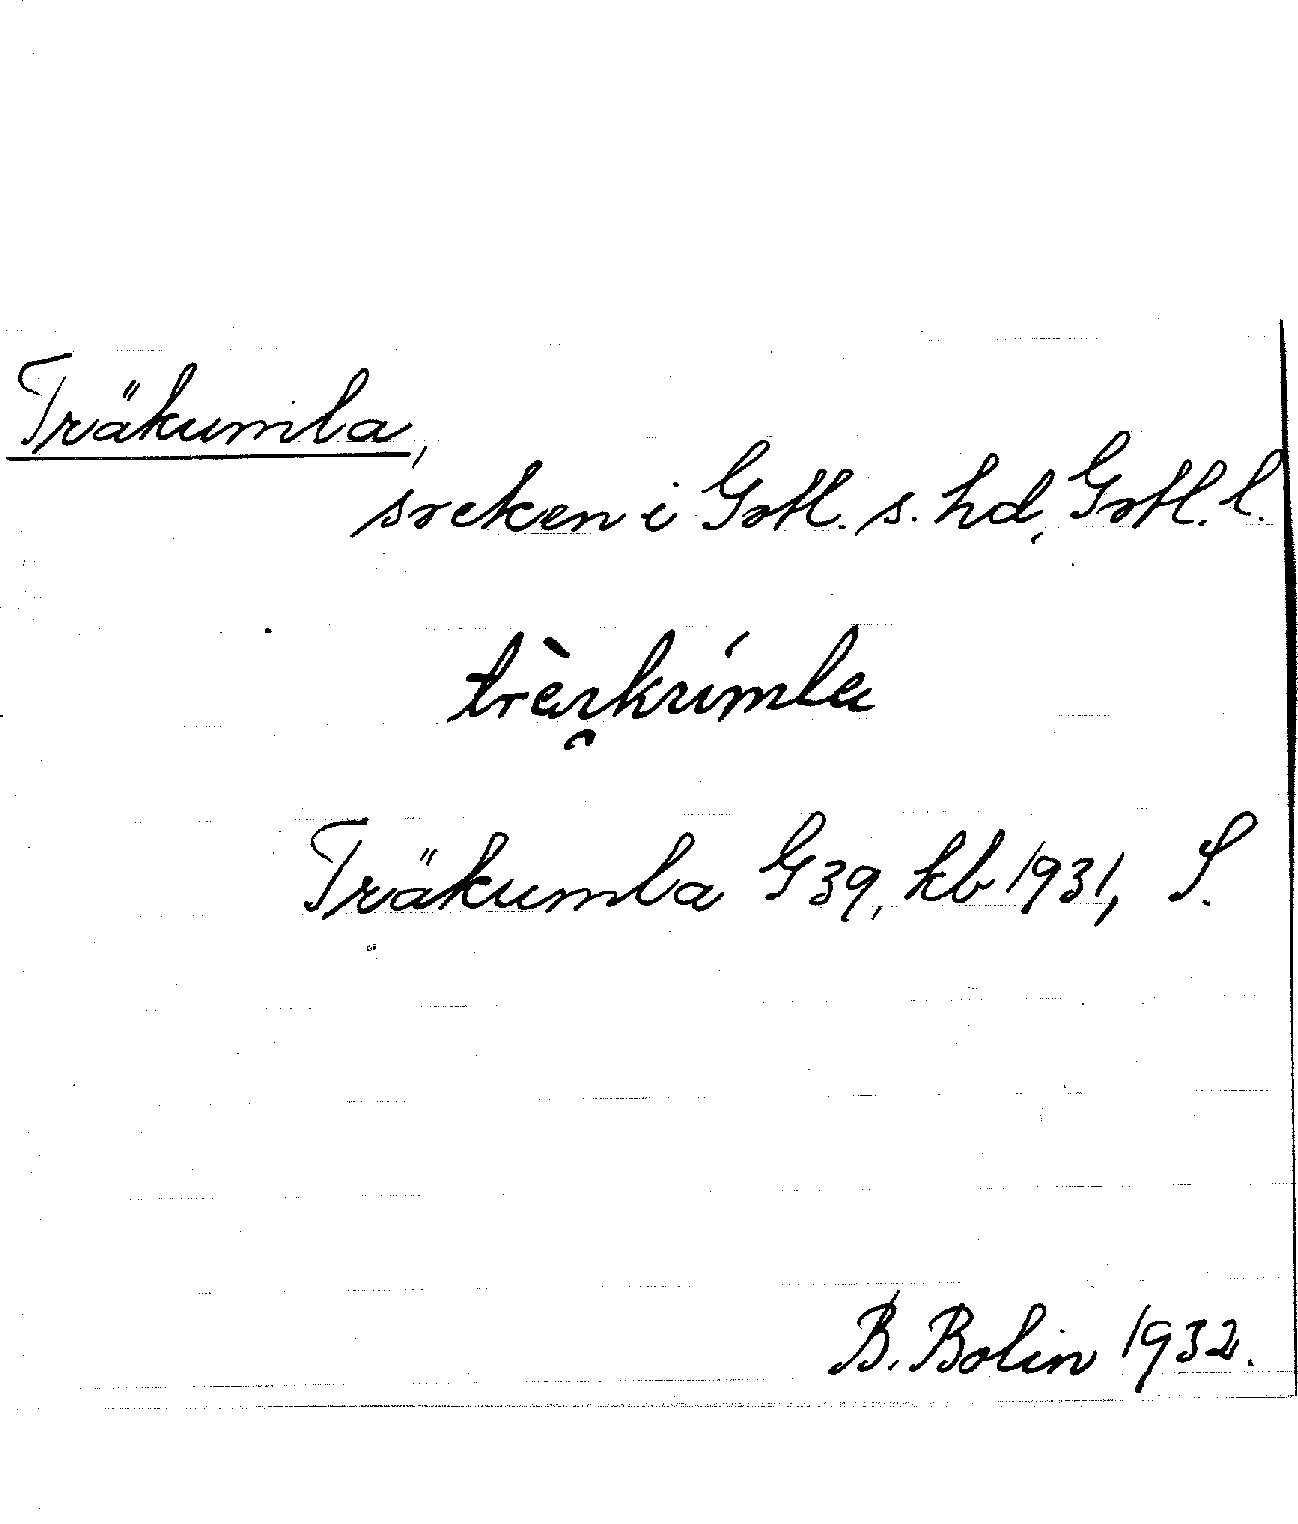 Träkumla,
socken i Gotl. s. hd, Gotl. l.
Träkumla G 39, kb 1931, S.
B. Bolin 1932.